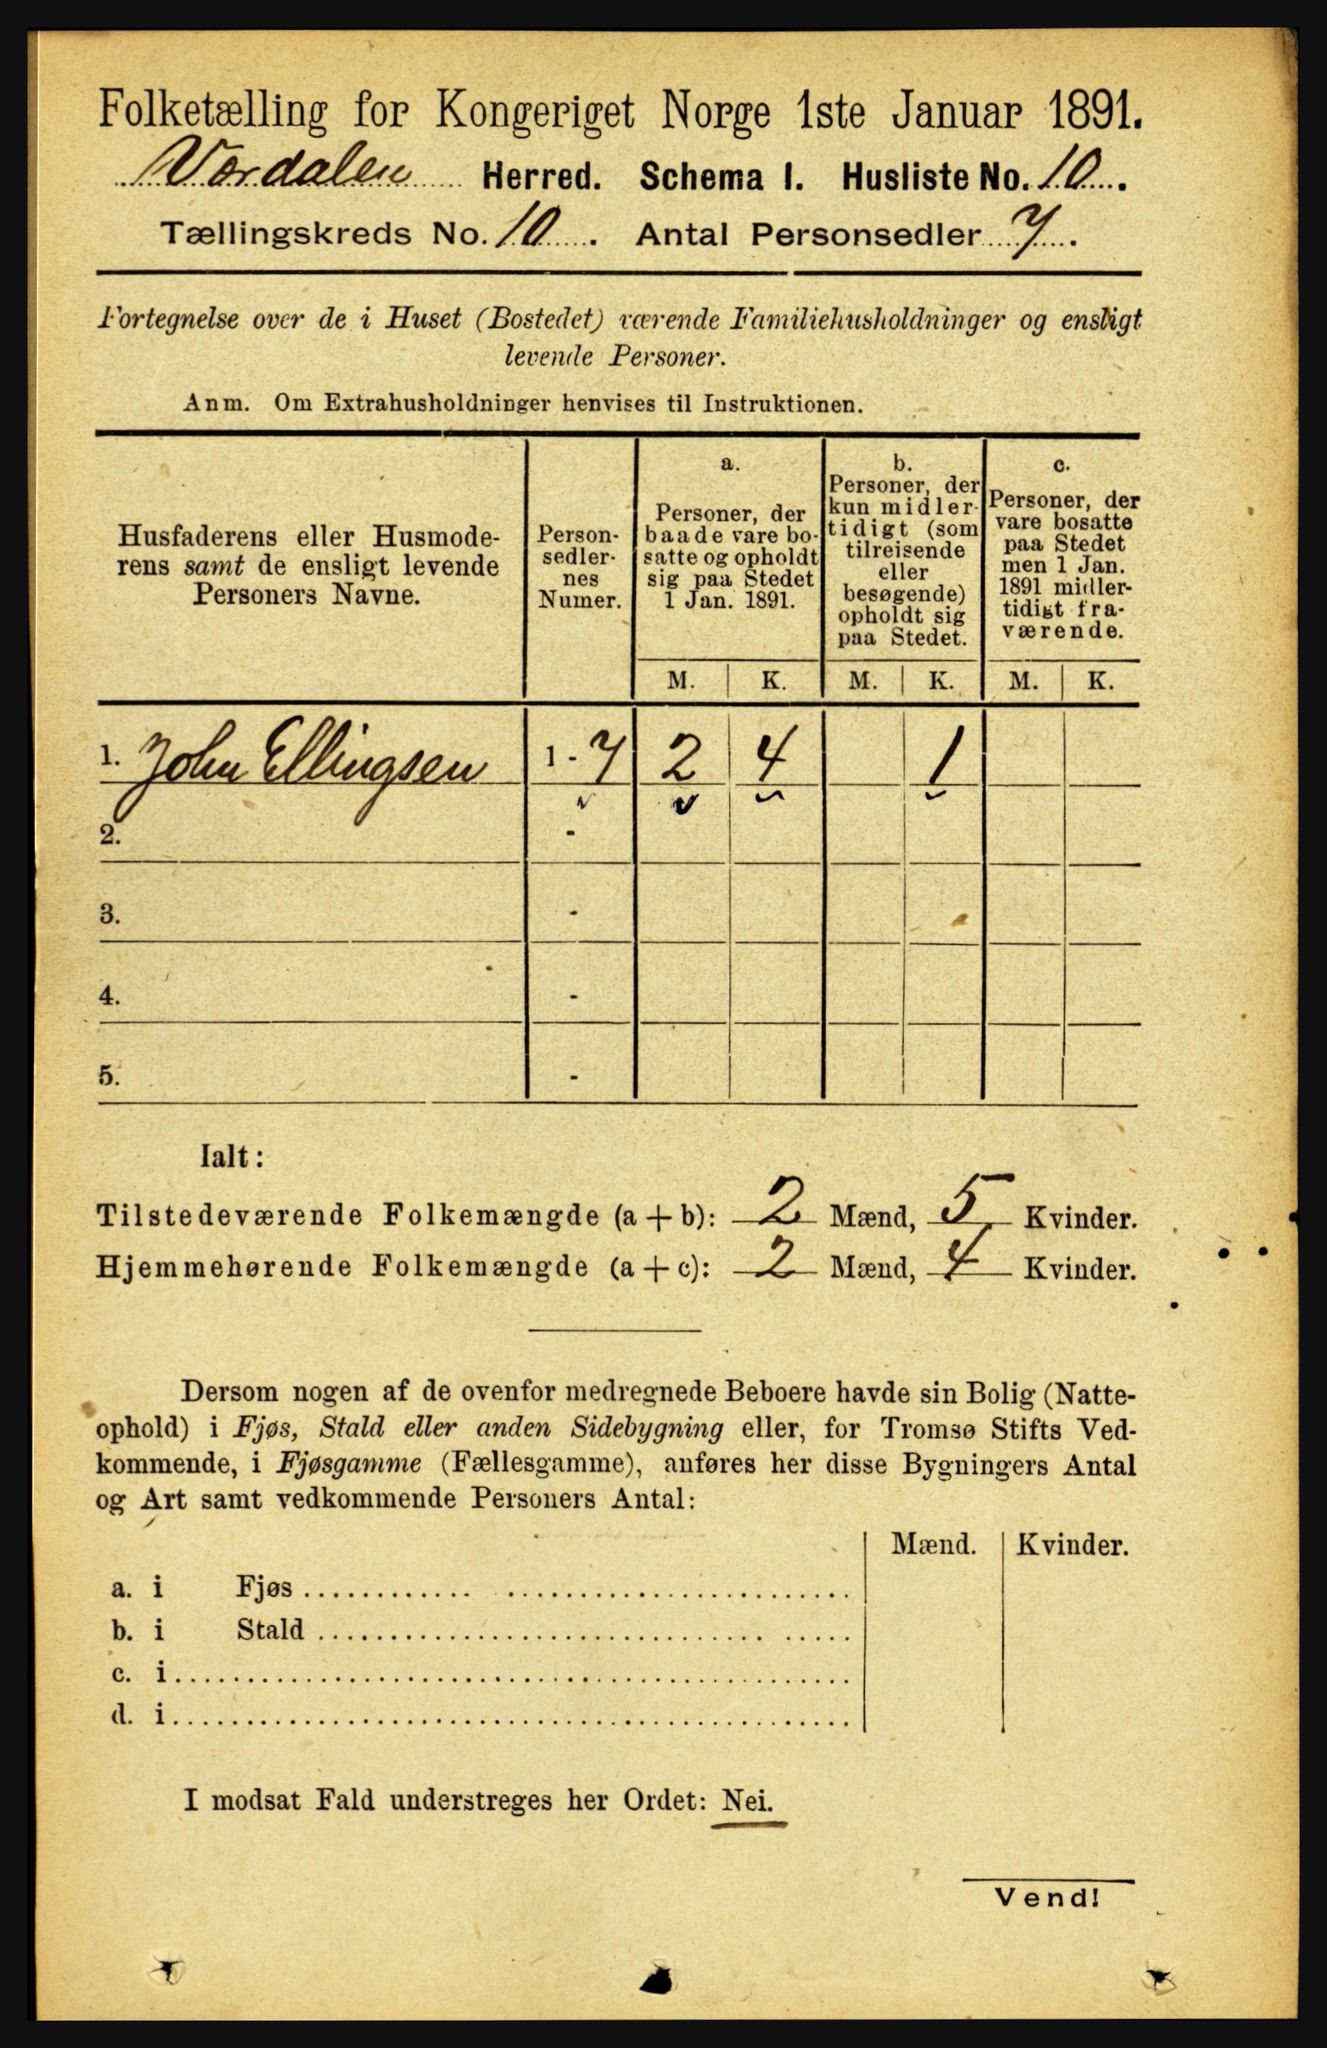 Folketælling for Kongeriget Norge 1ste Januar 1891.
Værdalen Herred. Schema I. Husliste No. 10.
Tællingskreds No. 10. Antal Personsedler 7.
Fortegnelse over de i Huset (Bostedet) værende Familiehusholdninger og ensligt
levende Personer.
Anm. Om Extrahusholdninger henvises til Instruktionen.
Husfaderens eller Husmode-
rens samt de ensligt levende
Personers Navne.
Person-
sedler-
nes
Numer.
a.
Personer, der
baade vare bo-
satte og opholdt
sig paa Stedet
1 Jan. 1891.
b.
Personer, der
kun midler-
tidigt (som
tilreisende
eller
besøgende)
opholdt sig
paa Stedet.
c.
Personer, der
vare bosatte
paa Stedet
men 1 Jan.
1891 midler-
tidigt fra-
værende.
M. K. M. K. M. K.
1. John Ellingsen 1 - 7 2 4 1
2. -
3. -
4. -
5. -
Ialt:
Tilstedeværende Folkemængde (a + b): 2 Mænd, 5 Kvinder.
Hjemmehørende Folkemængde (a + c): 2 Mænd, 4 Kvinder.
Dersom nogen af de ovenfor medregnede Beboere havde sin Bolig (Natte-
ophold) i Fjøs, Stald eller anden Sidebygning eller, for Tromsø Stifts Ved-
kommende, i Fjøsgamme (Fællesgamme), anføres her disse Bygningers Antal
og Art samt vedkommende Personers Antal:
Mænd. Kvinder.
a. i Fjøs
b. i Stald
c. i
d. i
I modsat Fald understreges her Ordet: Nei.
Vend!